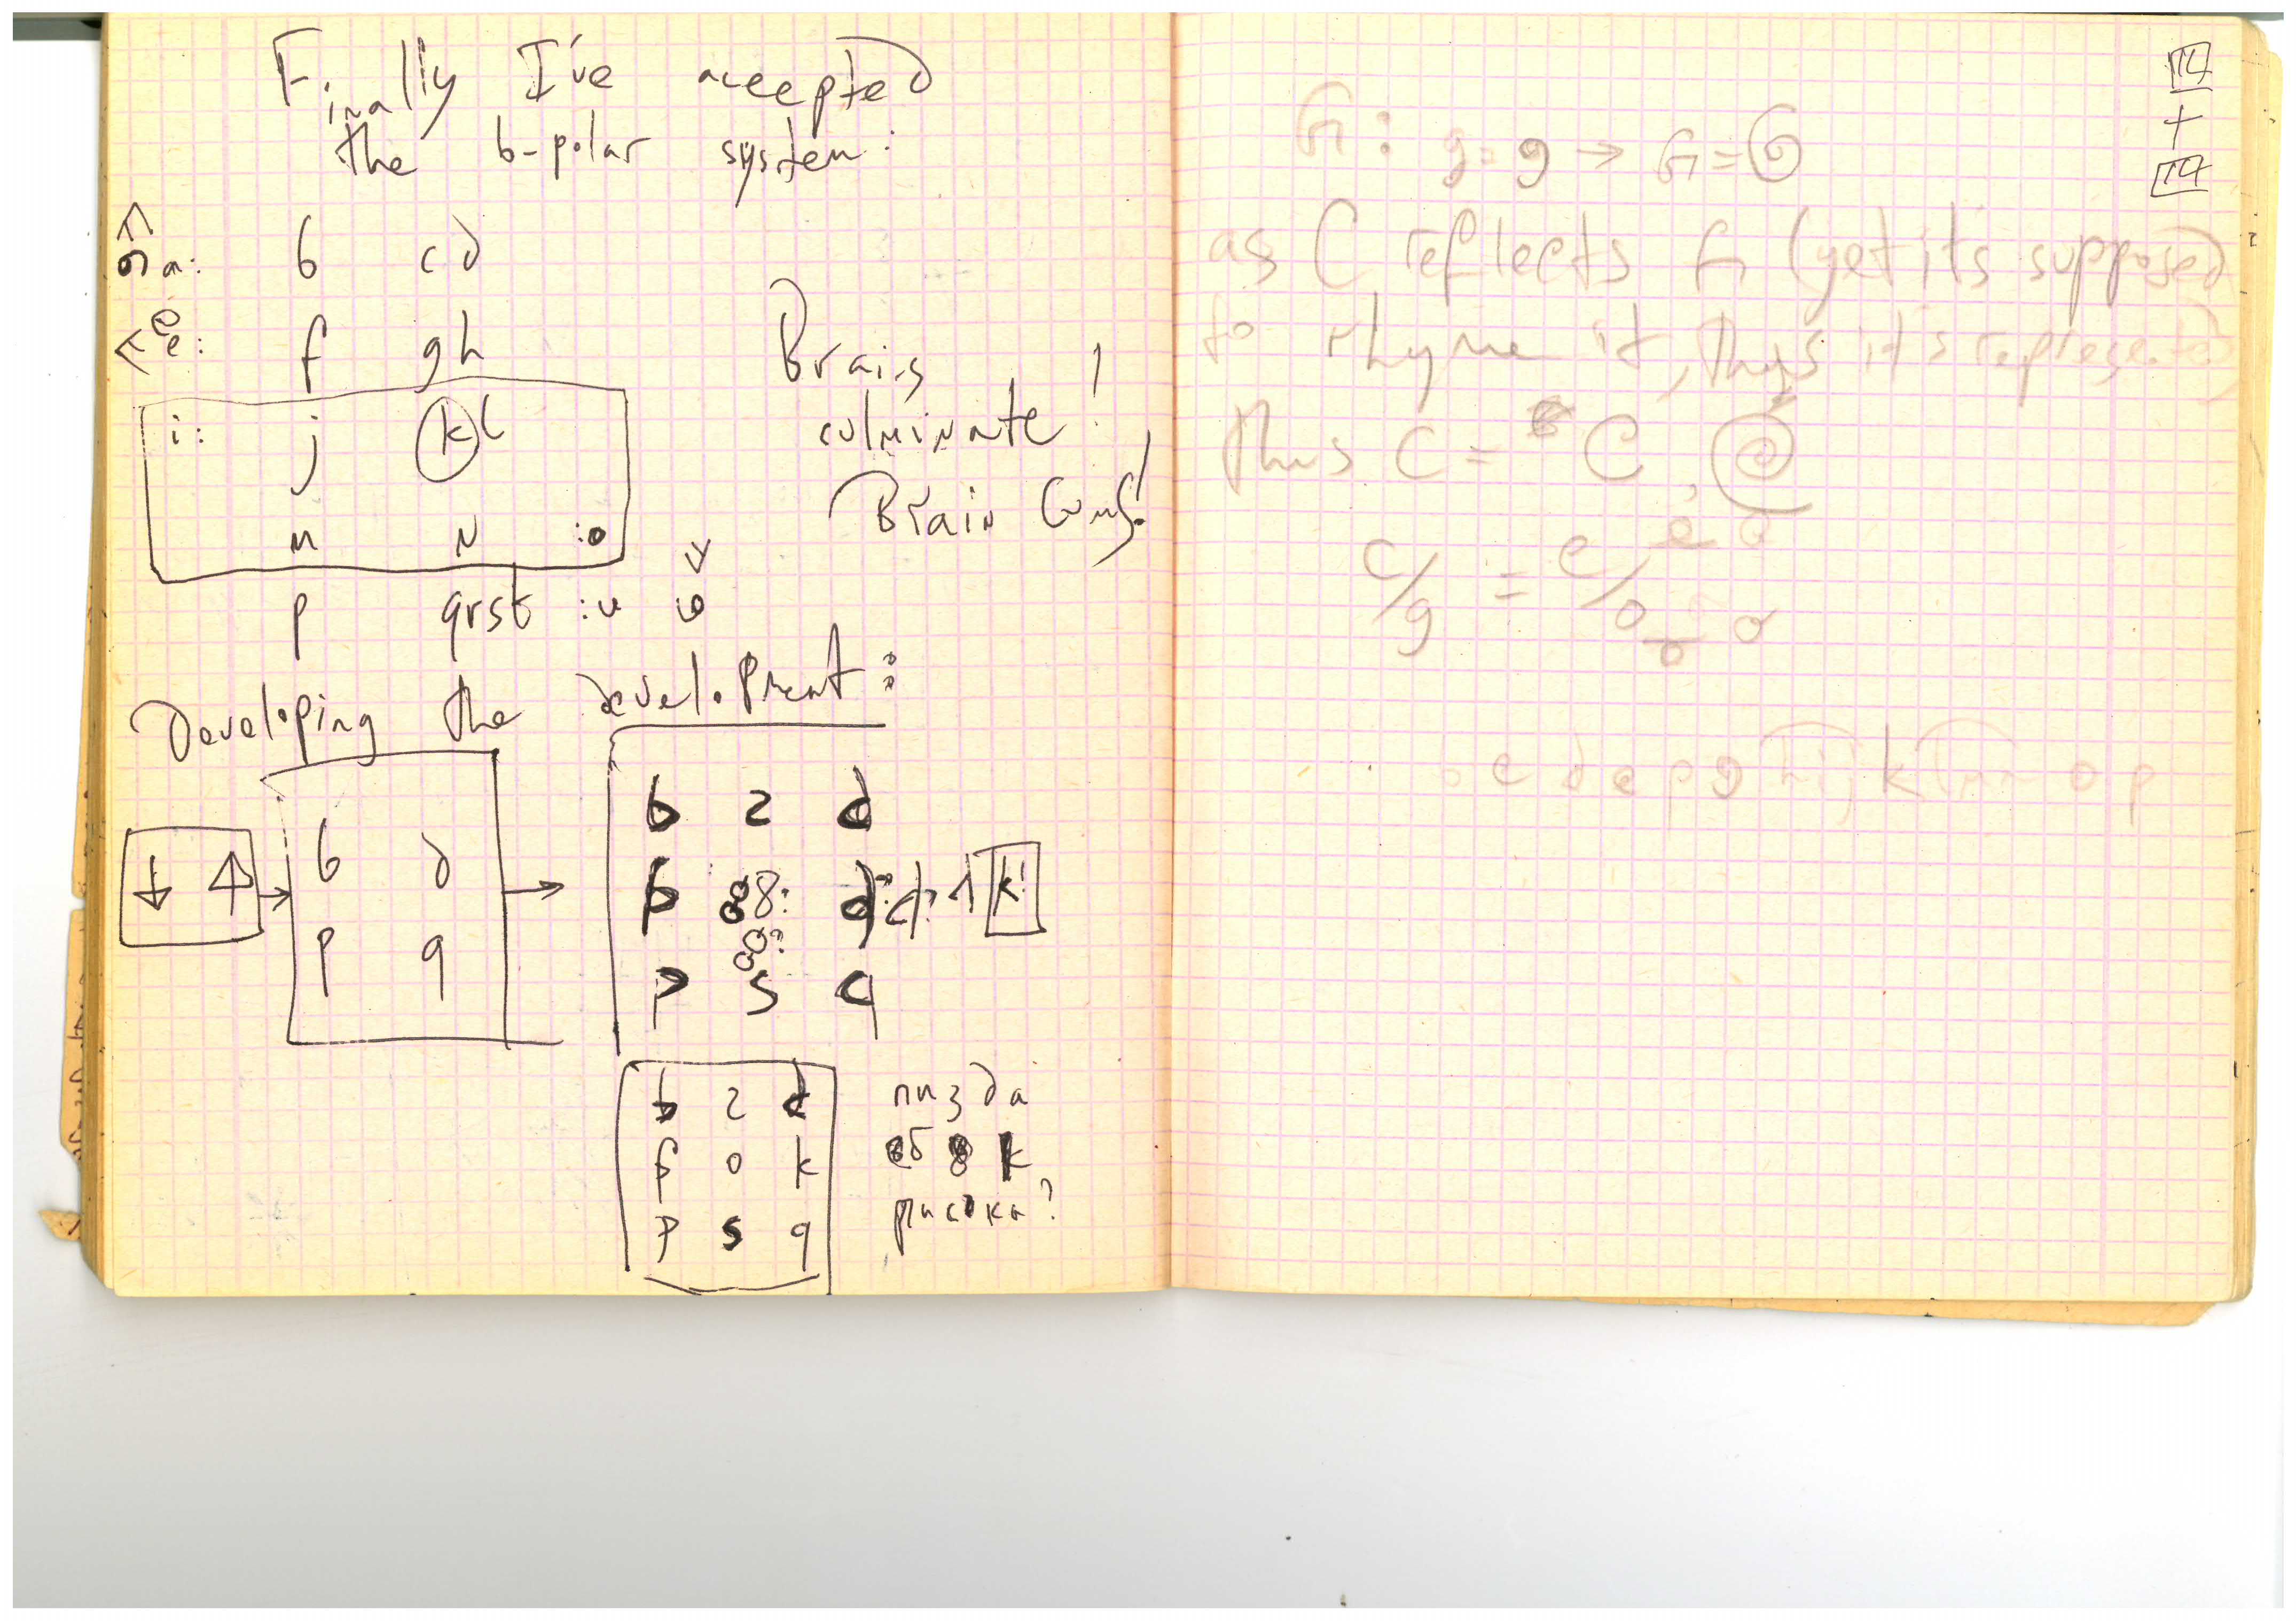 Finally I've accepted
the b-polar system:
a: b cd
e: f gh
i: j k l
m n :o
p qrst :u
Brains
culminate!
Brain Cums!
Developing the development:
b d
p q
b 2 d
p 5 q
k!
b 2 d
f o k
p s q
пизда
四
十
四
G: g = g → G = G
as C reflects G (yet its supposed
to rhyme it, thus it's represented
thus C = C
c/g = e/o
c d e p g h i j k l m n o p